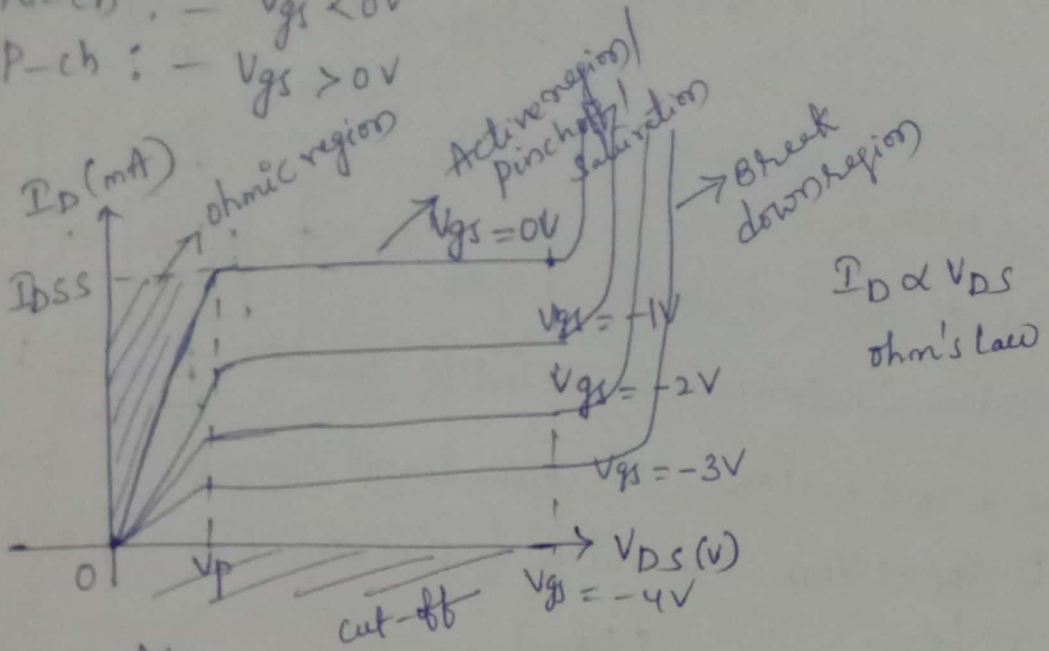 Vgs < 0V
P-ch : - Vgs > 0V
ID (mA)
ohmic region
Active region /
pinchoff /
saturation
Break
down region
IDSS
Vgs = 0V
Vgs = -1V
Vgs = -2V
Vgs = -3V
ID ∝ VDS
ohm's law
0
Vp
VDS (V)
Vgs = -4V
cut-off